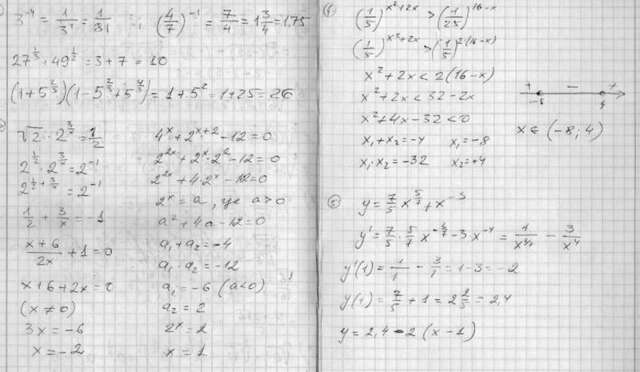 3^-4 = 1/3^4 = 1/81 ; (4/7)^-1 = 7/4 = 1 3/4 = 1.75
27^1/3 + 49^1/2 = 3 + 7 = 10
(1+5^2/3)(1-5^2/3+5^4/3) = 1+5^2 = 1+25 = 26
√2 · 2^3/x = 1/2
2^1/2 · 2^3/x = 2^-1
2^1/2+3/x = 2^-1
1/2 + 3/x = -1
x+6/2x + 1 = 0
x+6+2x = 0
(x≠0)
3x = -6
x = -2
4^x + 2^x+2 - 12 = 0
2^2x + 2^x · 2^2 - 12 = 0
2^2x + 4·2^x - 12 = 0
2^x = a, где a > 0
a² + 4a - 12 = 0
a₁ + a₂ = -4
a₁ · a₂ = -12
a₁ = -6 (a<0)
a₂ = 2
2^x = 2
x = 1
(1/5)^x²+2x > (1/25)^16-x
(1/5)^x²+2x > (1/5)^2(16-x)
x² + 2x < 2(16-x)
x² + 2x < 32 - 2x
x² + 4x - 32 < 0
x₁ + x₂ = -4 x₁ = -8
x₁ · x₂ = -32 x₂ = +4
+ − +
-8 4
x ∈ (-8; 4)
⑤ y = 7/5 x^5/7 + x^-3
y' = 7/5 · 5/7 x^-2/7 - 3x^-4 = 1/x^2/7 - 3/x^4
y'(1) = 1/1 - 3/1 = 1 - 3 = -2
y(1) = 7/5 + 1 = 2 2/5 = 2,4
y = 2,4 - 2 (x - 1)